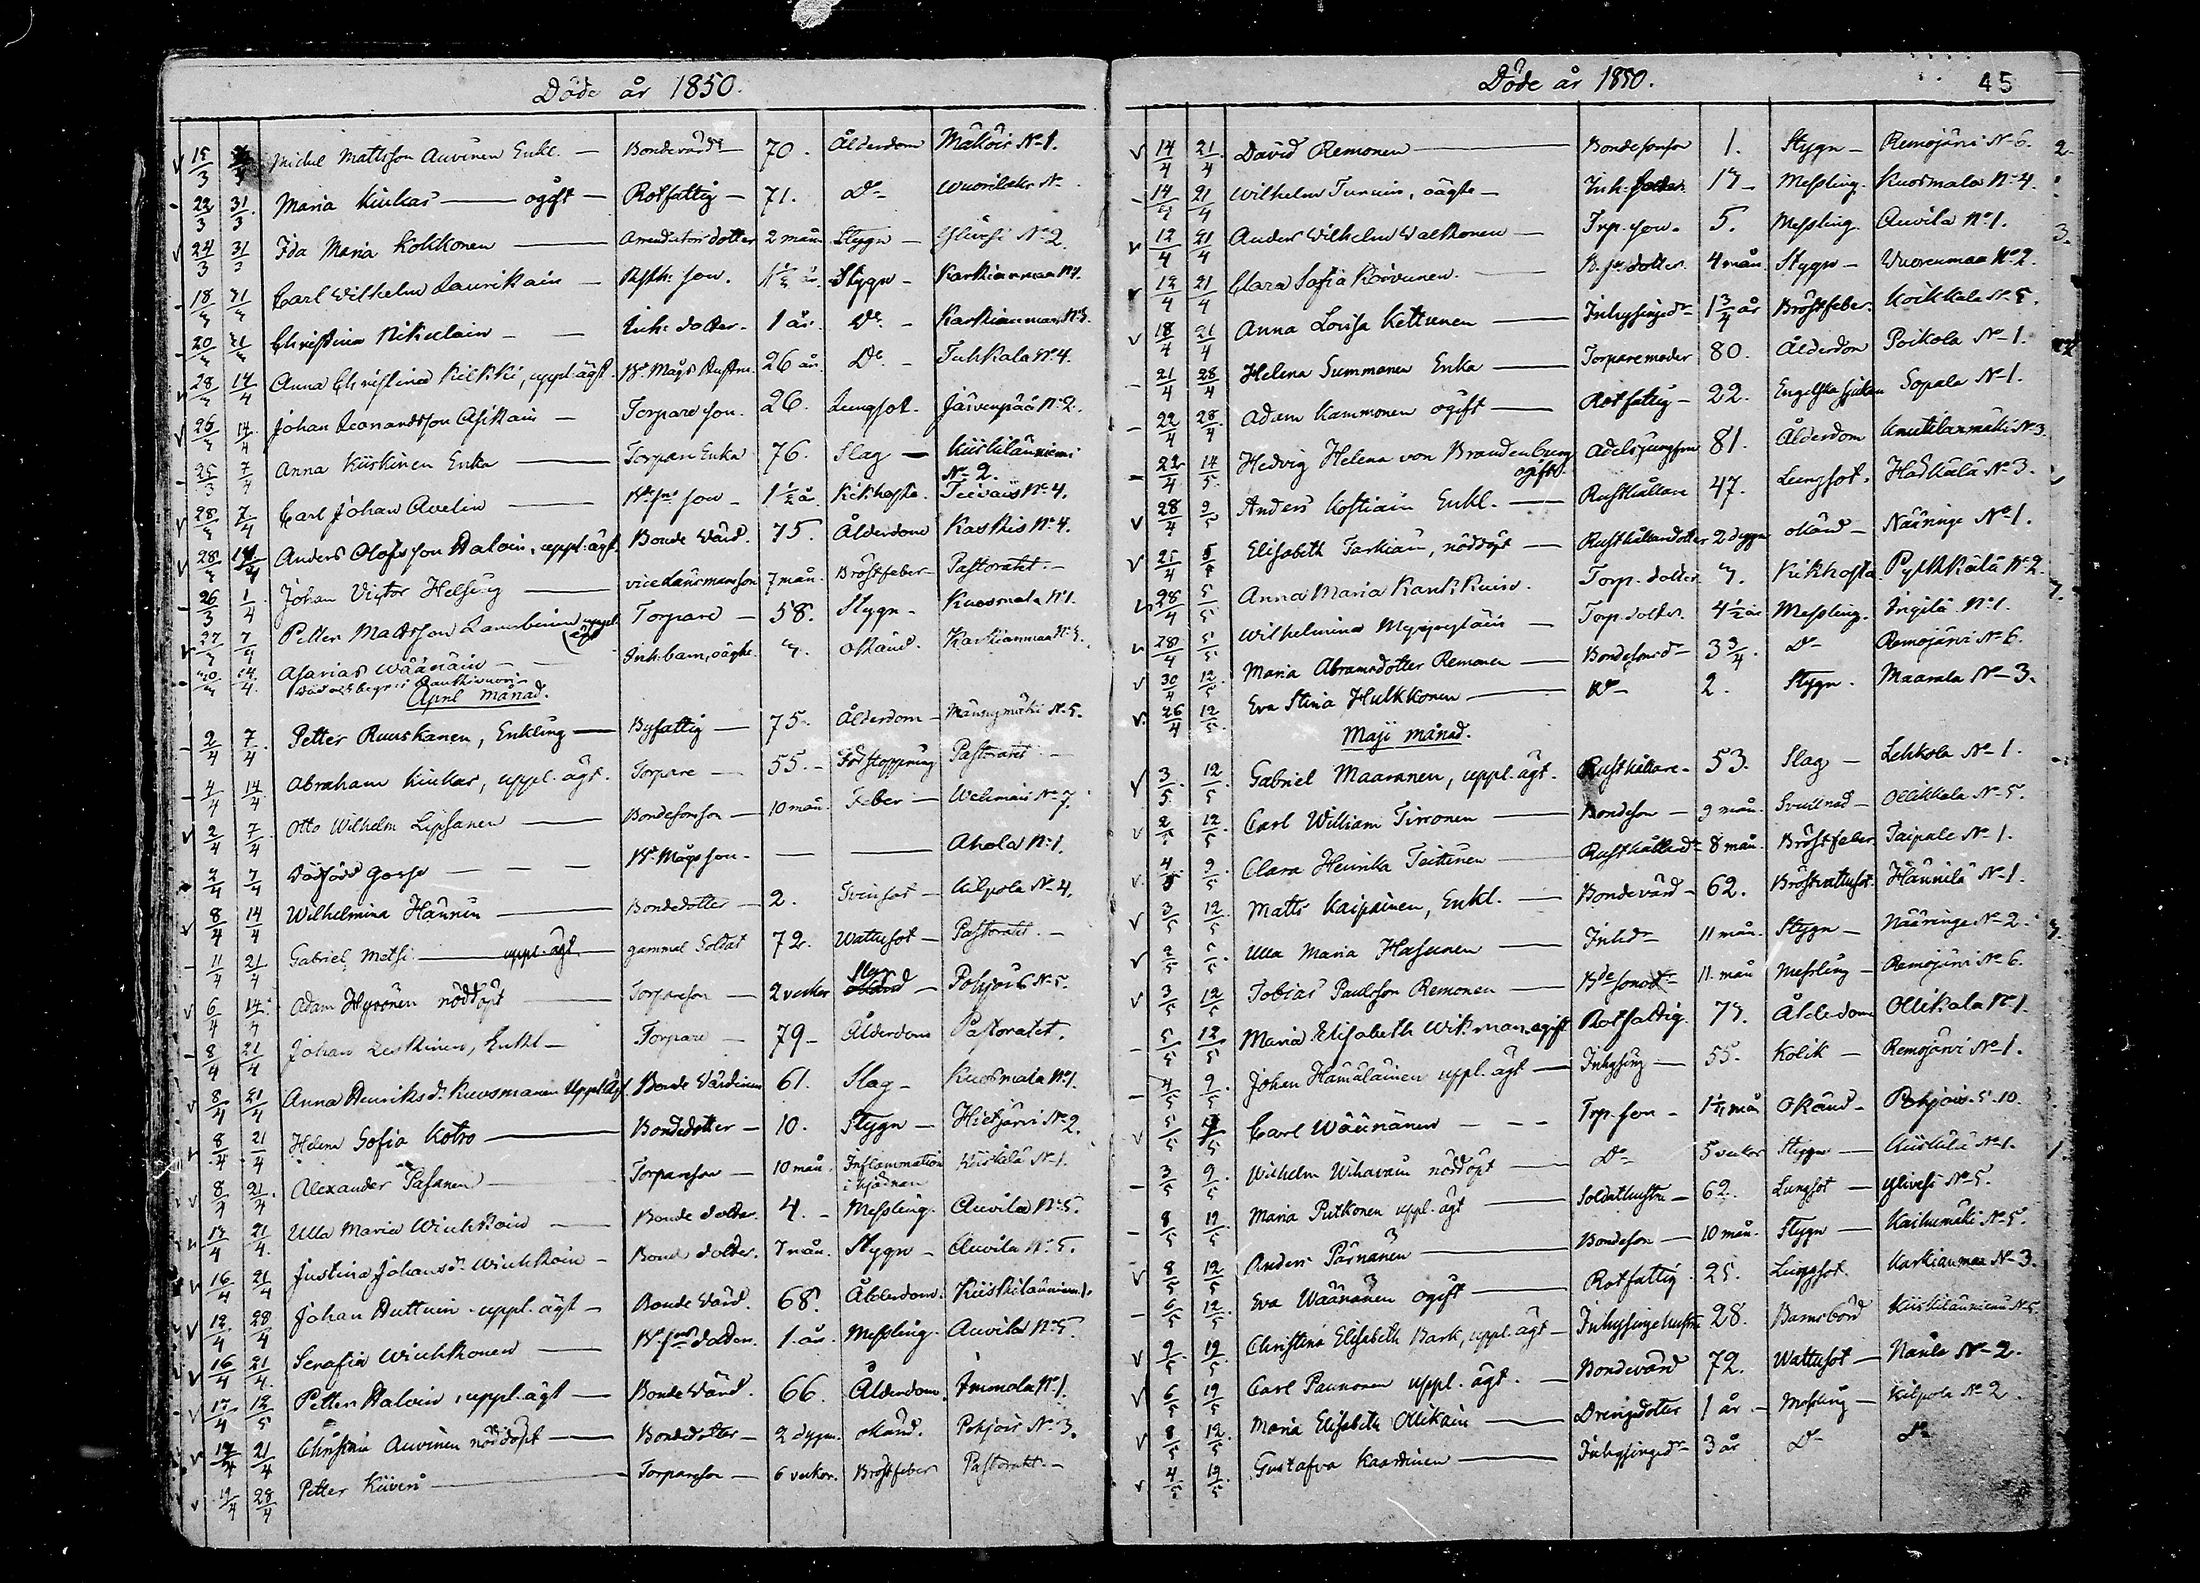 Döde år 1850.
15/3 Michel Mattsson Auvinen Enkl. — Bondevärd — 70. Ålderdom Mäköis No 1.
22/3 31/3 Maria Kiukas — ogift — Rotfattig — 71. Do
24/3 31/3 Ida Maria Kokkonen — Arendators dotter 2 mån. Stygn — Ylivesi No 2.
18/3 31/3 Carl Wilhelm Laurikain — son. Stygn — Karkianmaa
20/3 31/3 Christina Nikulain — Inh: dotter. 1 år. Do — Karkianmaa No 3.
28/3 14/4 Anna Christina Kilkki, uppl. ägt. Bde Mågs Hustru 26 år. Do — Tuhkala No 4.
25/3 14/4 Johan Leonardsson Asikain — Torpare son. 26. Lungsot. Järvenpää No 2.
25/3 7/4 Anna Kiiskinen Enka — Torpare Enka 76. Slag — Kiiskilänniemi No 2.
28/3 7/4 Carl Johan Avelin — son — 1 1/2 år Kikhosta. Teivais No 4.
28/3 14/4 Anders Olofsson Haloin, uppl. ägt. Bonde Värd. 75. Ålderdom Kaskis No 4.
26/3 1/4 Johan Victor Helsing — vice Länsmanson 7 mån. Bröstfeber — Pastoratet. —
27/3 7/4 Petter Mattsson Lambinen uppl. ägt Torpare — 58. Stygn — Kuosmala No 1.
30/3 14/4 Asarias Wäänäin — Inh: barn, oägte. okänd. Karkianmaa No 3.
Död och begr. i Rautkivuori
April månad.
2/4 7/4 Petter Ruuskanen, Enkling — Byfattig — 75. Ålderdom — No 5.
4/4 14/4 Abraham Kiukas, uppl. ägt. Torpare — 55. — Förstoppning Pastoratet —
2/4 7/4 Otto Wilhelm Lipsanen — Bondesonson — 10 mån. Feber — Wehmais No 7.
2/4 7/4 Dödfödd Gosse — Bde Mågs son. — — Ahola No 1.
8/4 14/4 Wilhelmina Hännin — Bondedotter — 2. Tvinsot — Kilpola No 4.
11/4 21/4 Gabriel Metsi — uppl. ägt. gammal Soldat 72. Wattusot — Pastoratet. —
6/4 14/4 Adam Hyvönen nöddöpt — Torpareson — 2 veckor Slag Pohjois No 5.
8/4 21/4 Johan Leskinen, Enkl — Torpare — 79 — Ålderdom Pastoratet.
8/4 21/4 Anna Henriksdr Kuosmanen Uppl. Ägt. Bonde Värdinna 61. Slag — Kuosmala No 1.
8/4 21/4 Helena Sofia Kotro — Bondedotter — 10. Stygn — Hietjärvi No 2.
8/4 21/4 Alexander Pasanen — Torpareson — 10 mån. Inflammation i hjärnan Kiiskilä No 1.
13/4 21/4 Ulla Maria Winkkoin — Bonde dotter. 4. — Messling. Auvila No 5.
16/4 21/4 Justina Johansdr Winkkoin — Bonde dotter. 7 mån. Stygn — Auvila No 5.
12/4 28/4 Johan Huttuin uppl. ägt — Bonde Värd. 68. Ålderdom. Kiiskilänniemi
16/4 21/4 Serafia Winkkonen — dotter. 1 år. Messling. Auvila No 5.
17/4 12/5 Petter Haloin, uppl. ägt — Bonde Värd. 66. Ålderdom. Immola No 1.
19/4 21/4 Christina Auvinen nöddöpt — Bondedotter — 2 dygn. okänd. Pohjois No 3.
19/4 28/4 Petter Kiiveri — Torpareson — 6 veckor. Bröstfeber Pastoratet. —
Döde år 1850.
45
14/4 21/4 David Remonen — Bondesonson 1. Stygn — Remojärvi No 6.
14/4 21/4 Wilhelm Turuin, oägte — Inh: Messling. Kuosmala No 4.
12/4 21/4 Anders Wilhelm Valkonen — Trp. son. 5. Messling. Auvila No 1.
21/4 Clara Sofia Korvunen. — dotter. 4 mån. Stygn — Vuorenmaa No 2.
18/4 21/4 Anna Lovisa Kettunen — Inhysingedr 1 3/4 år Bröstfeber. Koikkala No 5.
21/4 28/4 Helena Summanen Enka — Torparemoder 80. Ålderdom Poikola No 1.
22/4 28/4 Adam Kammonen ogift — Rotfattig — 22. Engelska sjukan Sopala No 1.
22/4 14/5 Hedvig Helena von Brandenburg ogift Adelsjungfru 81. Ålderdom Knutilanmäki No 3.
28/4 9/5 Anders Kostiain Enkl. — Rusthållare 47. Lungsot. Härkälä No 3.
25/4 Elisabeth Tarkiain, nöddöpt — Rusthållaredotter 2 dygn okänd — Nääringe No 1.
28/4 5/5 Anna Maria Kaukkuin. Torp. dotter Kikhosta. No 2.
28/4 5/5 Wilhelmina — Torp. dotter. 4 1/2 år Messling. Ingilä No 1.
30/4 12/5 Maria Abramsdotter Remonen — Bondesonsdr 3 3/4. Do Remojärvi No 6.
26/4 12/5 Eva Stina Hulkkonen — Do 2. Stygn. Maarala No 3.
Maji månad.
3/5 12/5 Gabriel Maaranen, uppl. ägt. Rusthållare — 53. Slag — Lehkola No 1.
2/5 12/5 Carl William Tirronen — Bondeson — 9 mån. Svullnad — Ollikkala No 5.
4/5 9/5 Clara Henrika Teittinen — Rusthålldr 8 mån. Bröstfeber Taipale No 1.
3/5 12/5 Matts Kaipainen, Enkl. — Bondevärd — 62. Bröstvattusot Hännilä No 1.
2/5 5/5 Ulla Maria Hasunen — Inhdr 11 mån. Stygn — Nääringe No 2.
3/5 12/5 Tobias Paulsson Remonen — 11 mån Messling — Remojärvi No 6.
5/5 12/5 Maria Elisabeth Wikman, ogift Rotfattig. Ålderdom Ollikala No 1.
4/5 9/5 Johan Hämäläinen uppl. ägt — Inhysing — 55. Kolik — Remojärvi No 1.
5/5 Carl Wäänänen — Trp. son — okänd — Pohjois
3/5 9/5 Wilhelm Wihavain nöddöpt — Do 5 veckor Stygn — Kiiskilä No 1.
8/5 19/5 Maria Putkonen uppl. ägt — Soldathustru — 62. Lungsot — Ylivesi No 5.
8/5 12/5 Anders Pärnänen — Bondeson — 10 mån. Stygn — No 5.
6/5 12/5 Eva Wäänänen ogift — Rotfattig. 25. Lungsot. Karkianmaa No 3.
9/5 19/5 Christina Elisabeth Bark, uppl. ägt — Inhysingehustru 28. Barnsbörd Kiiskilänniemi No 5.
6/5 19/5 Carl Paunonen uppl. ägt. — Bondevärd 72. Wattusot — No 2.
8/5 12/5 Maria Elisabeth Ollikain — Drengedotter 1 år — Messling — Kilpola No 2.
4/5 19/5 Gustafva Kaartinen — Inhysingedr 3 år Do Do